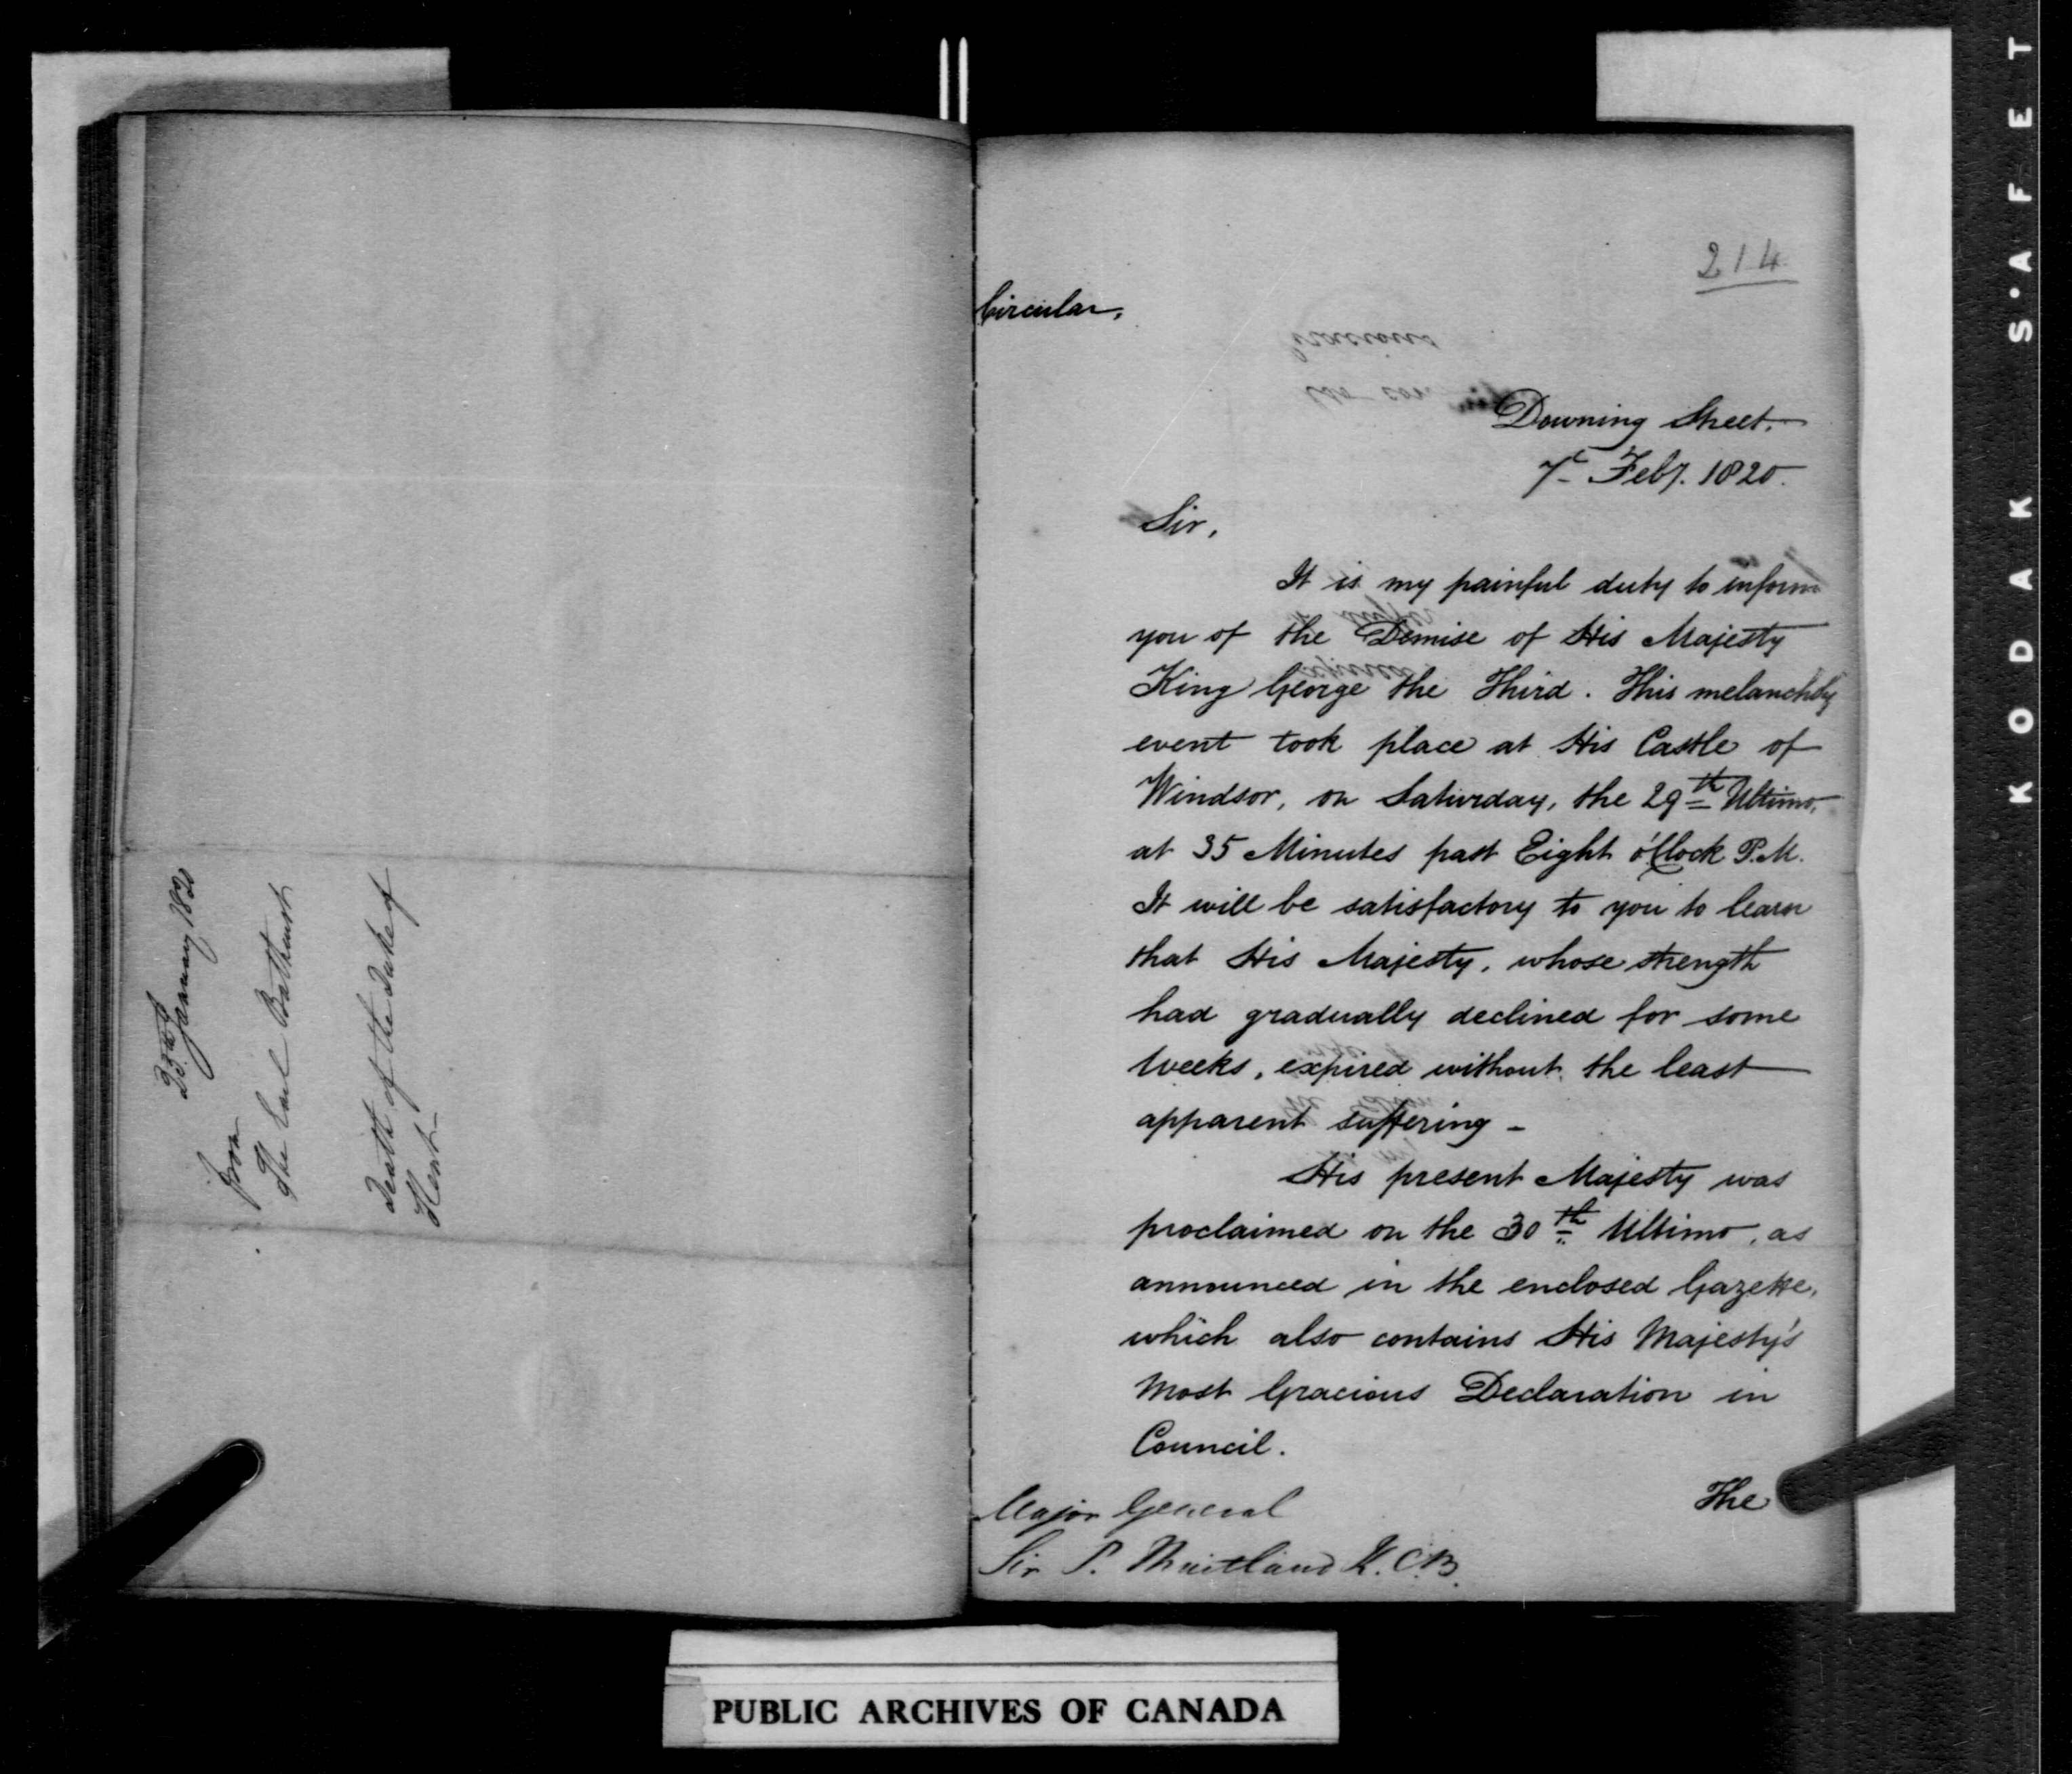 January 1820
From
The Earl Bathurst
Death of the Duke of
Kent
214
Circular,
Downing Street,
7th Feby. 1820.
Sir,
It is my painful duty to inform
you of the Demise of His Majesty
King George the Third. This melancholy
event took place at His Castle of
Windsor, on Saturday, the 29th Ultimo,
at 35 Minutes past Eight o'Clock P.M.
It will be satisfactory to you to learn
that His Majesty, whose strength
had gradually declined for some
Weeks, expired without the least
apparent suffering –
His present Majesty was
proclaimed on the 30th Ultimo, as
announced in the enclosed Gazette,
which also contains His Majesty's
Most Gracious Declaration in
Council.
The
Major General
Sir P. Maitland K.C.B.
PUBLIC ARCHIVES OF CANADA
KODAK S'AFET